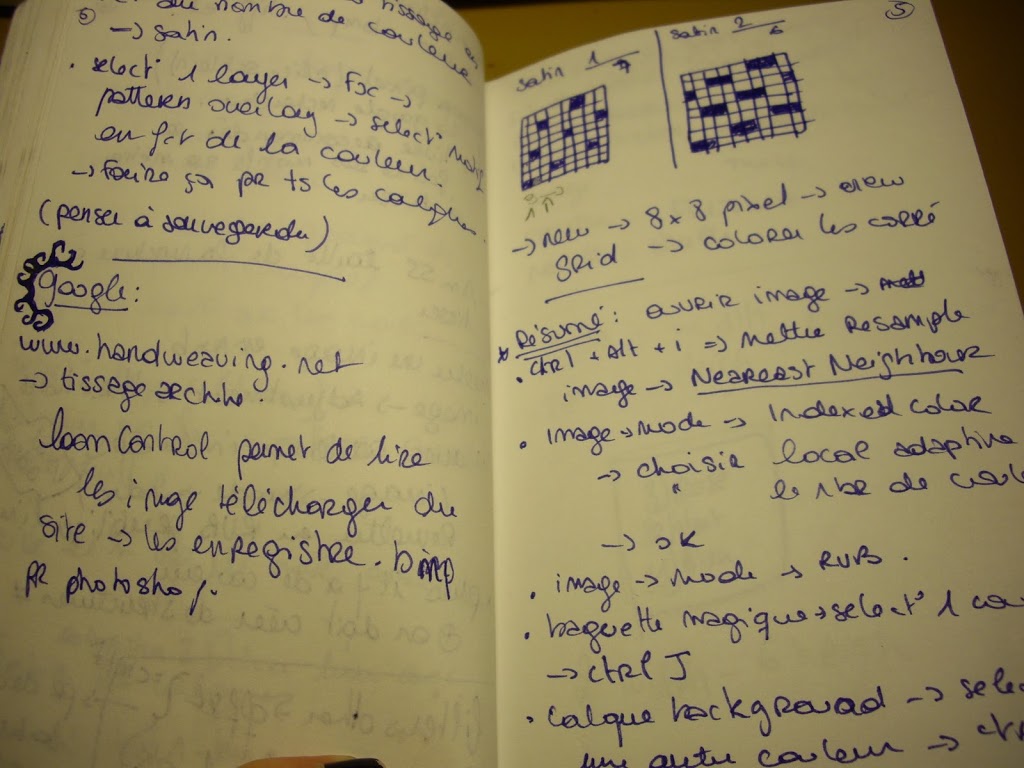 tissage au
du nombre de couleur
⑥ → satin.
• select° 1 layer → Fx →
pattern overlay → select°
en fct de la couleur.
→ Faire ça pr ts les calques.
(penser à sauvegarder)
Google:
www.handweaving.net
→ tissage archive.
loomControl permet de lire
les image télécharger du
site → les enregistre. bimp
pr photoshop.
5
satin 1/7
satin 2/6
→ new → 8 x 8 pixel → view
grid → colorer les carré
* Résumé: ouvrir image →
• Ctrl + Alt + i => mettre Resample
image → Nearest Neighbour
• image → mode → Indexed color
→ choisir local adaptive
" le nbre de coule
→ OK
• image → mode → RVB.
• baguette magique → select° 1 cou
→ ctrl J
• calque background → sele
une autre couleur → ct